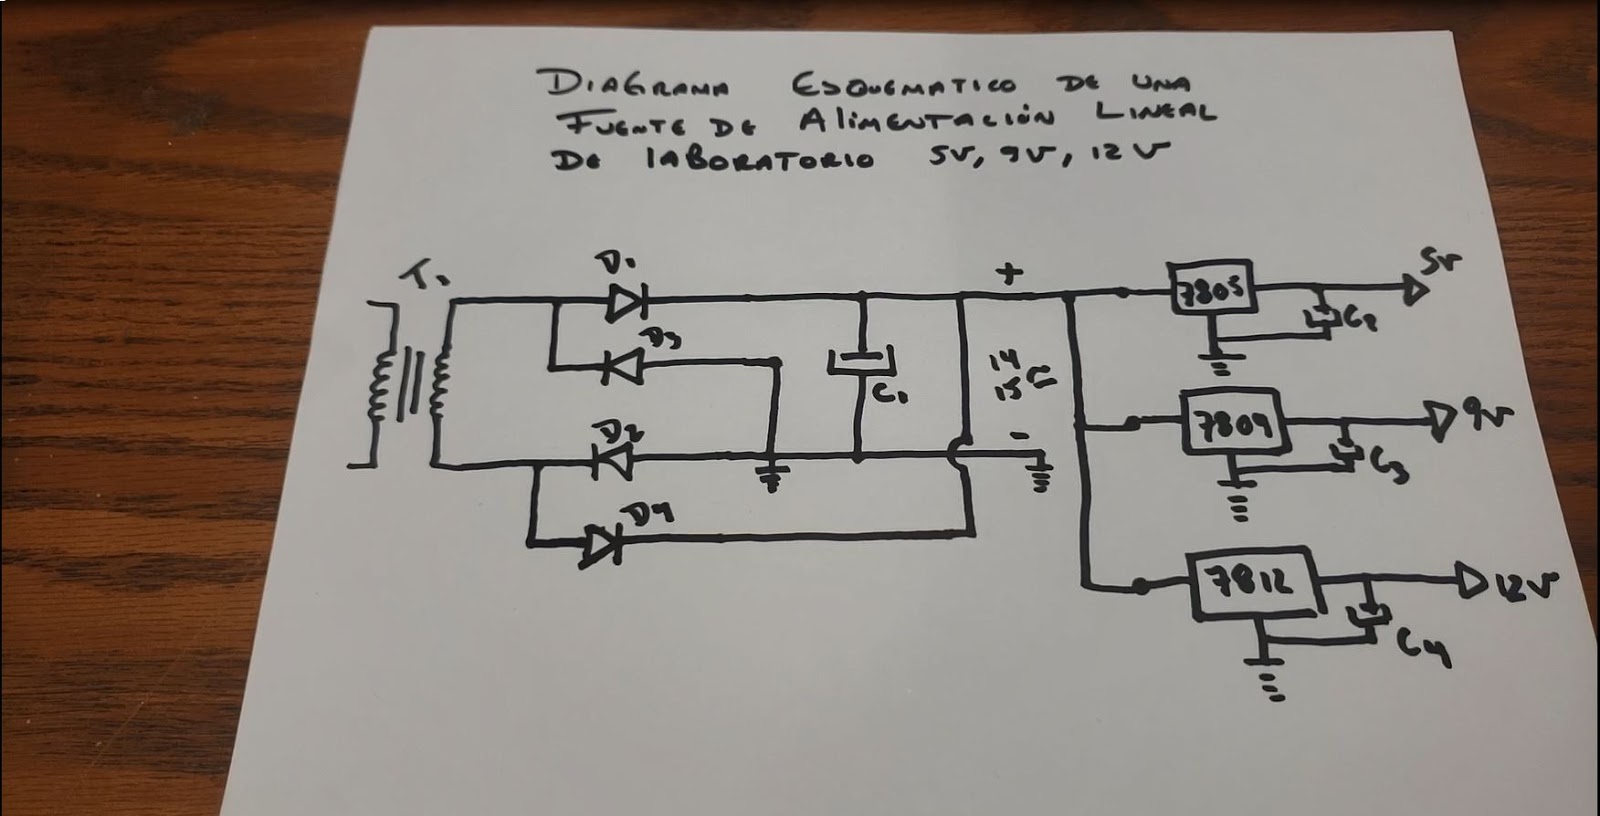 DIAGRAMA ESQUEMATICO DE UNA
FUENTE DE ALIMENTACIÓN LINEAL
DE LABORATORIO 5V, 9V, 12V
T1
D1
D3
D2
D4
C1
+
14
15
-
7805
5V
C2
7809
9V
C3
7812
12V
C4